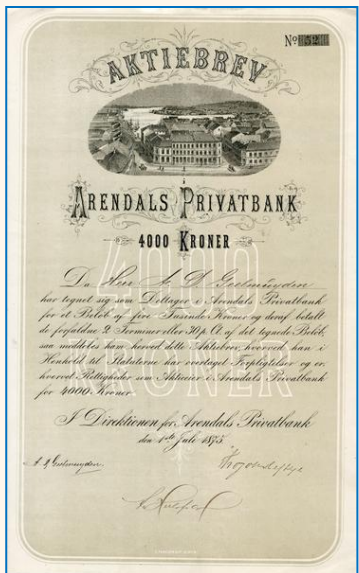 No 52
AKTIEBREV
ARENDALS PRIVATBANK
4000 KRONER
Da Herr A. D. Geelmuyden
har tegnet sig som Deltager i Arendals Privatbank
for et Beløb af fire Tusinde Kroner og deraf betalt
de forfaldne 2 Terminer eller 10 p. Ct. af det tegnede Beløb,
saa meddeles ham herved dette Aktiebrev, hvorved han i
Henhold til Statuterne har overtaget Forpligtelser og er
hvervet Rettigheder som Aktieeier i Arendals Privatbank
for 4000 Kroner.
I Direktionen for Arendals Privatbank
den 1ste Juli 1875
A. D. Geelmuyden.